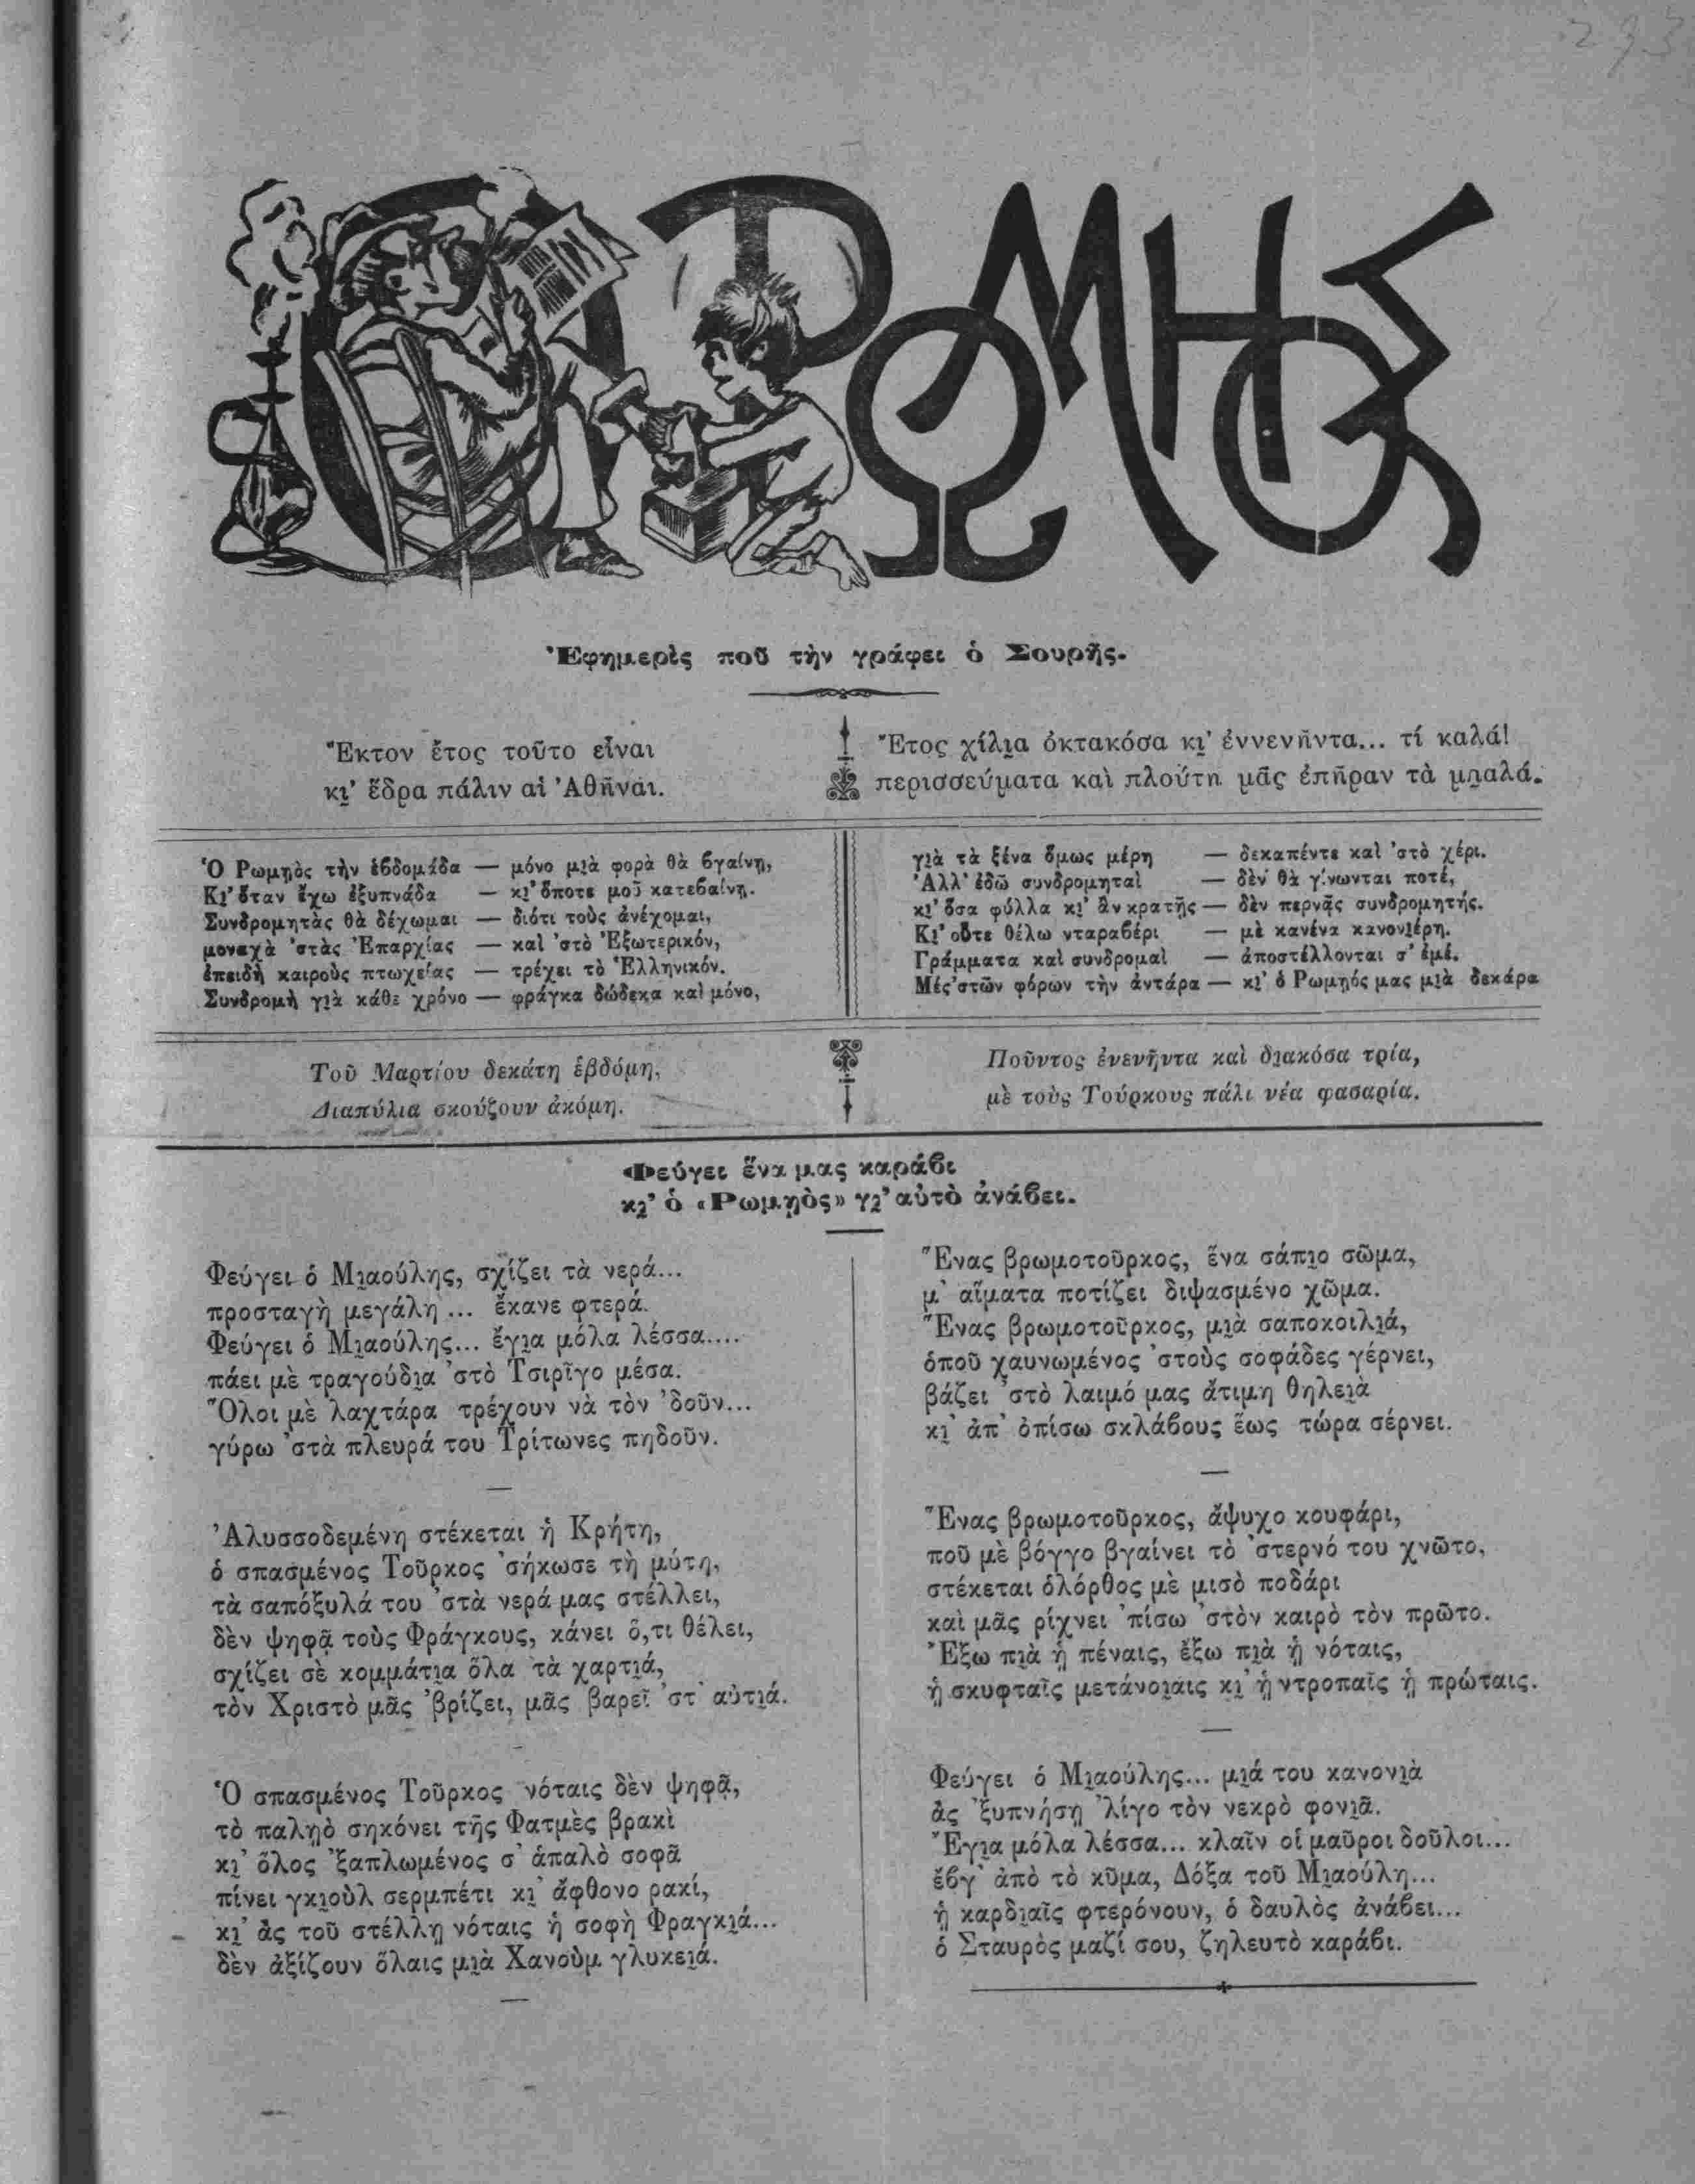 293
Ο ΡΩΜΗΟΣ
Ἐφημερὶς ποῦ τὴν γράφει ὁ Σουρῆς.
Ἕκτον ἔτος τοῦτο εἶναι
κι̯' ἕδρα πάλιν αἱ Ἀθῆναι.
Ἔτος χίλι̯α ὀκτακόσα κι̯' ἐννενῆντα... τί καλά!
περισσεύματα καὶ πλούτη μᾶς ἐπῆραν τὰ μυ̯αλά.
Ὁ Ρωμῃὸς τὴν ἑβδομάδα — μόνο μι̯ὰ φορὰ θὰ βγαίνῃ,
Κι̯' ὅταν ἔχω ἐξυπνάδα — κι̯' ὅποτε μοῦ κατεβαίνῃ.
Συνδρομητὰς θὰ δέχωμαι — διότι τοὺς ἀνέχομαι,
μοναχὰ 'στὰς Ἐπαρχίας — καὶ 'στὸ Ἐξωτερικόν,
ἐπειδὴ καιροὺς πτωχείας — τρέχει τὸ Ἑλληνικόν.
Συνδρομὴ γι̯ὰ κάθε χρόνο — φράγκα δώδεκα καὶ μόνο,
γι̯ὰ τὰ ξένα ὅμως μέρη — δεκαπέντε καὶ 'στὸ χέρι.
Ἀλλ' ἐδῶ συνδρομηταὶ — δὲν θὰ γίνωνται ποτέ,
κι̯' ὅσα φύλλα κι̯' ἂν κρατῇς — δὲν περνᾷς συνδρομητής.
Κι̯' οὔτε θέλω νταραβέρι — μὲ κανένα κανονι̯έρη.
Γράμματα καὶ συνδρομαὶ — ἀποστέλλονται σ' ἐμέ.
Μές 'στῶν φόρων τὴν ἀντάρα — κι̯' ὁ Ρωμῃός μας μι̯ὰ δεκάρα
Τοῦ Μαρτίου δεκάτη ἑβδόμη,
Διαπύλια σκούζουν ἀκόμη.
Ποῦντος ἐνενῆντα καὶ δι̯ακόσα τρία,
μὲ τοὺς Τούρκους πάλι νέα φασαρία.
Φεύγει ἕνα μας καράβι
κι̯' ὁ «Ρωμῃὸς» γι̯' αὐτὸ ἀνάβει.
Φεύγει ὁ Μι̯αούλης, σχίζει τὰ νερά...
προσταγὴ μεγάλη ... ἔκανε φτερά.
Φεύγει ὁ Μι̯αούλης... ἔγι̯α μόλα λέσσα....
πάει μὲ τραγούδι̯α 'στὸ Τσιρῖγο μέσα.
Ὅλοι μὲ λαχτάρα τρέχουν νὰ τὸν 'δοῦν...
γύρω 'στὰ πλευρά του Τρίτωνες πηδοῦν.
—
Ἀλυσσοδεμένη στέκεται ἡ Κρήτη,
ὁ σπασμένος Τοῦρκος 'σήκωσε τὴ μύτη,
τὰ σαπόξυλά του 'στὰ νερά μας στέλλει,
δὲν ψηφᾷ τοὺς Φράγκους, κάνει ὅ,τι θέλει,
σχίζει σὲ κομμάτι̯α ὅλα τὰ χαρτι̯ά,
τὸν Χριστὸ μᾶς 'βρίζει, μᾶς βαρεῖ 'στ' αὐτι̯ά.
—
Ὁ σπασμένος Τοῦρκος νόταις δὲν ψηφᾷ,
τὸ παλῃὸ σηκόνει τῆς Φατμὲς βρακὶ
κι̯' ὅλος 'ξαπλωμένος σ' ἁπαλὸ σοφᾶ
πίνει γκι̯οὺλ σερμπέτι κι̯' ἄφθονο ρακί,
κι̯' ἂς τοῦ στέλλῃ νόταις ἡ σοφὴ Φραγκι̯ά...
δὲν ἀξίζουν ὅλαις μι̯ὰ Χανοὺμ γλυκει̯ά.
—
Ἕνας βρωμοτοῦρκος, ἕνα σάπι̯ο σῶμα,
μ' αἵματα ποτίζει διψασμένο χῶμα.
Ἕνας βρωμοτοῦρκος, μι̯ὰ σαποκοιλι̯ά,
ὁποῦ χαυνωμένος 'στοὺς σοφάδες γέρνει,
βάζει 'στὸ λαιμό μας ἄτιμη θηλει̯ὰ
κι̯' ἀπ' ὀπίσω σκλάβους ἕως τώρα σέρνει.
—
Ἕνας βρωμοτοῦρκος, ἄψυχο κουφάρι,
ποῦ μὲ βόγγο βγαίνει τὸ 'στερνό του χνῶτο,
στέκεται ὁλόρθος μὲ μισὸ ποδάρι
καὶ μᾶς ρίχνει 'πίσω 'στὸν καιρὸ τὸν πρῶτο.
Ἔξω πι̯ὰ ᾑ πέναις, ἔξω πι̯ὰ ᾑ νόταις,
ᾑ σκυφταῖς μετάνοι̯αις κι̯' ᾑ ντροπαῖς ᾑ πρώταις.
—
Φεύγει ὁ Μι̯αούλης... μι̯ά του κανονι̯ὰ
ἂς 'ξυπνήσῃ 'λίγο τὸν νεκρὸ φονι̯ᾶ.
Ἔγι̯α μόλα λέσσα... κλαῖν οἱ μαῦροι δοῦλοι...
ἔβγ' ἀπὸ τὸ κῦμα, Δόξα τοῦ Μι̯αούλη...
ᾑ καρδι̯αῖς φτερόνουν, ὁ δαυλὸς ἀνάβει...
ὁ Σταυρὸς μαζί σου, ζηλευτὸ καράβι.